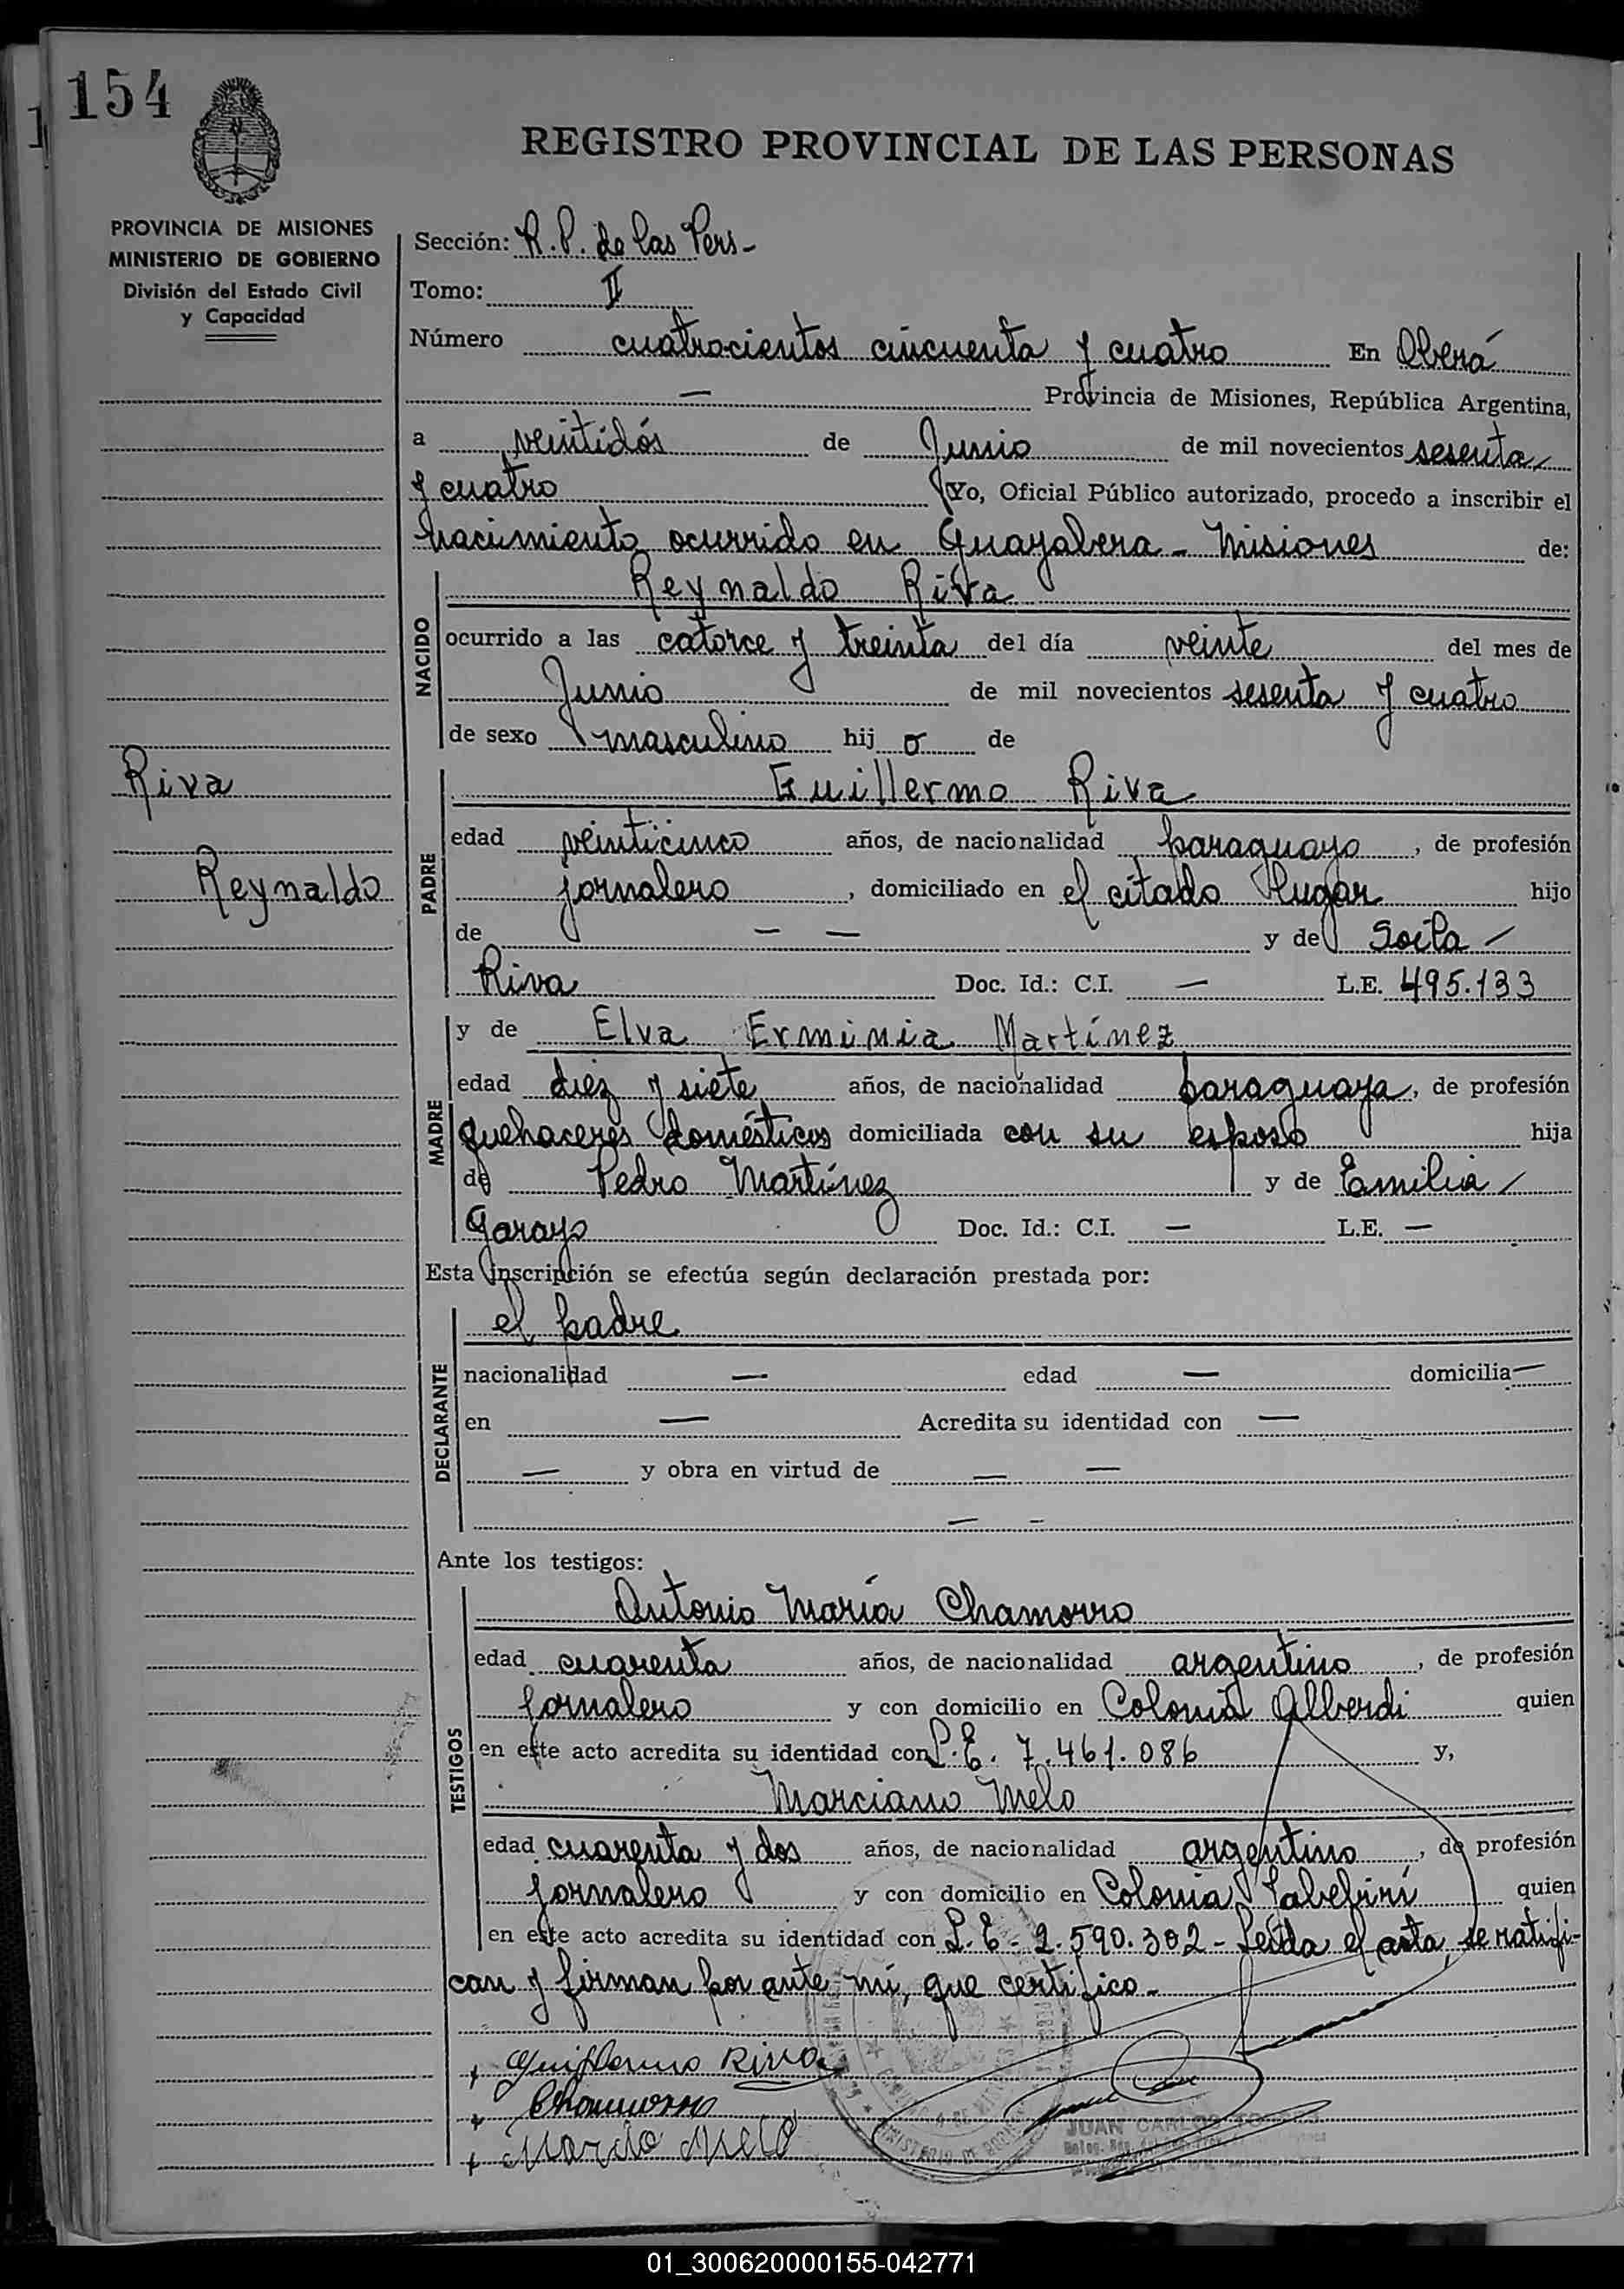 154
REGISTRO PROVINCIAL DE LAS PERSONAS
PROVINCIA DE MISIONES
MINISTERIO DE GOBIERNO
División del Estado Civil
y Capacidad
Sección: R. P. de las Pers-
Tomo: II
Número cuatrocientos cincuenta y cuatro En Oberá
— Provincia de Misiones, República Argentina,
a veintidós de Junio de mil novecientos sesenta
y cuatro Yo, Oficial Público autorizado, procedo a inscribir el
nacimiento ocurrido en Guayabera - Misiones de:
NACIDO
Reynaldo Riva
ocurrido a las catorce y treinta del día veinte del mes de
Junio de mil novecientos sesenta y cuatro
de sexo masculino hij o de
Riva
Reynaldo
PADRE
Guillermo Riva
edad veinticinco años, de nacionalidad paraguayo, de profesión
jornalero, domiciliado en el citado lugar hijo
de — — y de Soila
Riva Doc. Id.: C.I. — L.E. 495.133
MADRE
y de Elva Erminia Martínez
edad diez y siete años, de nacionalidad paraguaya, de profesión
quehaceres domésticos domiciliada con su esposo hija
de Pedro Martínez y de Emilia
Garayo Doc. Id.: C.I. — L.E. —
Esta inscripción se efectúa según declaración prestada por:
DECLARANTE
el padre
nacionalidad — edad — domicilia —
en — Acredita su identidad con —
— y obra en virtud de — —
— —
Ante los testigos:
TESTIGOS
Antonio María Chamorro
edad cuarenta años, de nacionalidad argentino, de profesión
jornalero y con domicilio en Colonia Alberdi quien
en este acto acredita su identidad con L.E. 7.461.086 y,
Marciano Melo
edad cuarenta y dos años, de nacionalidad argentino, de profesión
jornalero y con domicilio en Colonia Yabebirí quien
en este acto acredita su identidad con L.E - 2.590.302 - Leída el acta, se ratifi-
can y firman por ante mí, que certifico.-
Guillermo Riva
Chamorro
Marcio Melo
JUAN CARLOS
01_300620000155-042771